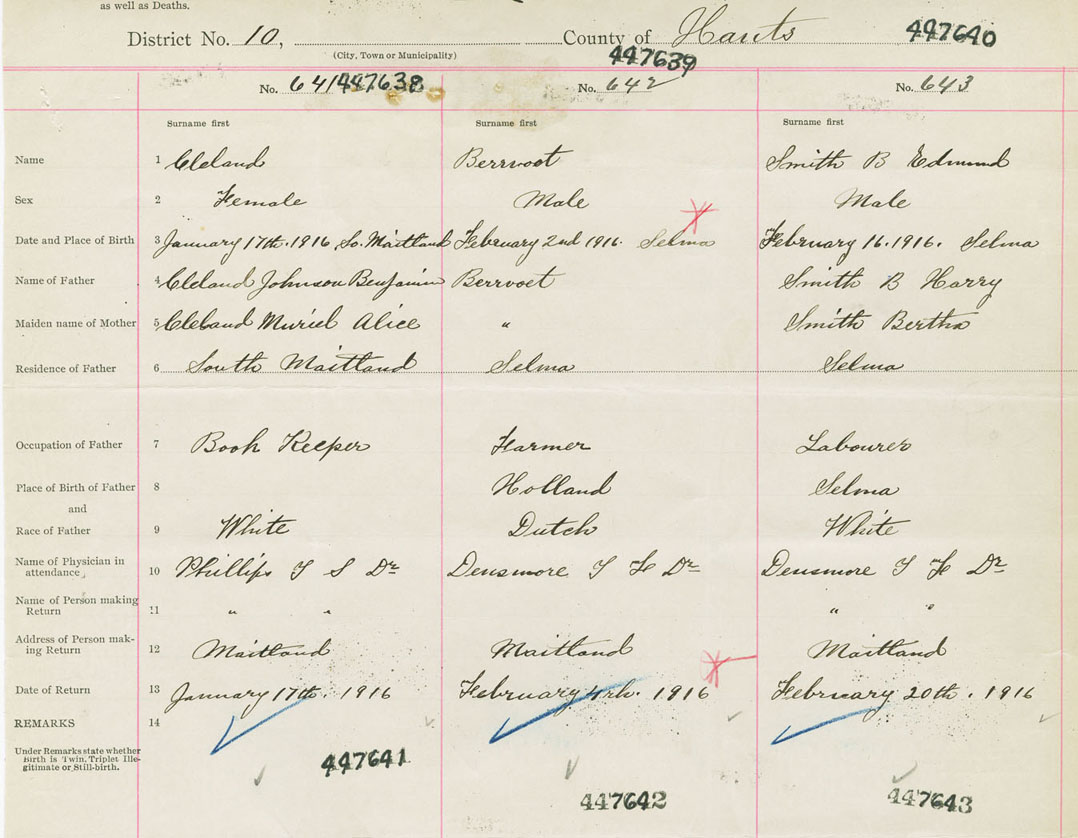 as well as Deaths.
District No. 10, County of Hants 447640
(City, Town or Municipality) 447639
No. 641 447638 No. 642 No. 643
Surname first Surname first Surname first
Name 1 Cleland Berrvoet Smith B Edmund
Sex 2 Female Male Male
Date and Place of Birth 3 January 17th. 1916, So. Maitland February 2nd 1916. Selma February 16. 1916. Selma
Name of Father 4 Cleland Johnson Benjamin Berrvoet Smith B Harry
Maiden name of Mother 5 Cleland Muriel Alice " Smith Bertha
Residence of Father 6 South Maitland Selma Selma
Occupation of Father 7 Book Keeper Farmer Labourer
Place of Birth of Father 8 Holland Selma
and
Race of Father 9 White Dutch White
Name of Physician in
attendance 10 Phillips T S Dr Densmore T F Dr Densmore T F Dr
Name of Person making
Return 11 " " " "
Address of Person mak-
ing Return 12 Maitland Maitland Maitland
Date of Return 13 January 17th. 1916 February 4th. 1916 February 20th. 1916
REMARKS 14
Under Remarks state whether
Birth is Twin, Triplet Ille-
gitimate or Still-birth.
447641 447642 447643